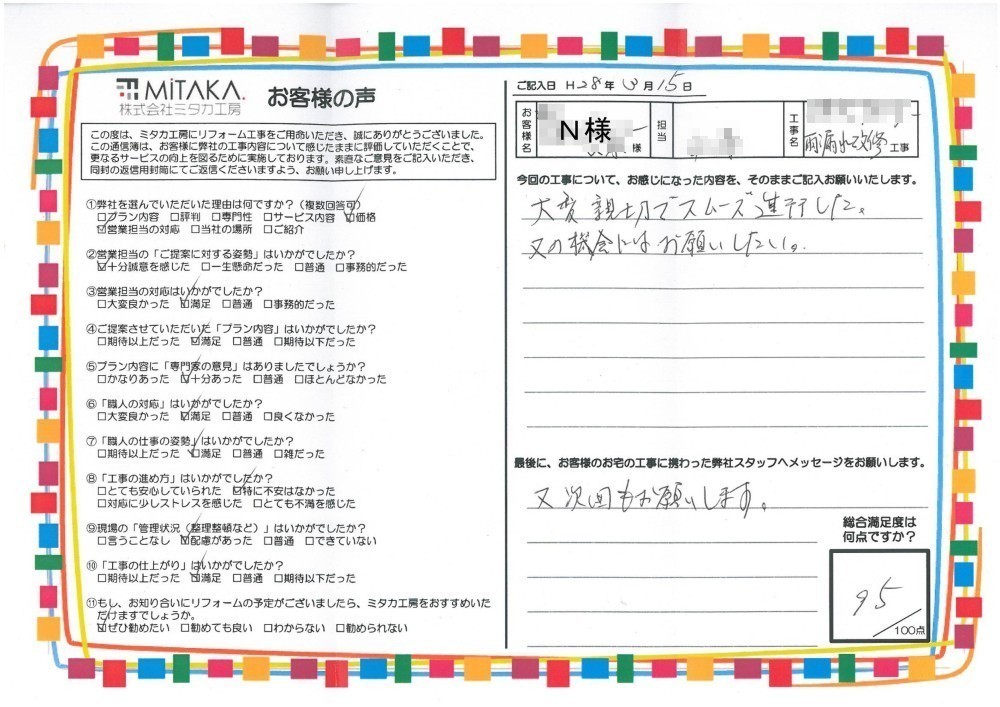 MiTAKA.
株式会社ミタカ工房
お客様の声
この度は、ミタカ工房にリフォーム工事をご用命いただき、誠にありがとうございました。
この通信簿は、お客様に弊社の工事内容について感じたままに評価していただくことで、
更なるサービスの向上を図るために実施しております。素直なご意見をご記入いただき、
同封の返信用封筒にてご返信くださいますよう、お願い申し上げます。
①弊社を選んでいただいた理由は何ですか?(複数回答可)
□プラン内容 □評判 □専門性 □サービス内容 ☑価格
☑営業担当の対応 □当社の場所 □ご紹介
②営業担当の「ご提案に対する姿勢」はいかがでしたか?
☑十分誠意を感じた □一生懸命だった □普通 □事務的だった
③営業担当の対応はいかがでしたか?
□大変良かった ☑満足 □普通 □事務的だった
④ご提案させていただいた「プラン内容」はいかがでしたか?
□期待以上だった ☑満足 □普通 □期待以下だった
⑤プラン内容に「専門家の意見」はありましたでしょうか?
□かなりあった ☑十分あった □普通 □ほとんどなかった
⑥「職人の対応」はいかがでしたか?
□大変良かった ☑満足 □普通 □良くなかった
⑦「職人の仕事の姿勢」はいかがでしたか?
□期待以上だった ☑満足 □普通 □雑だった
⑧「工事の進め方」はいかがでしたか?
□とても安心していられた ☑特に不安はなかった
□対応に少しストレスを感じた □とても不満を感じた
⑨現場の「管理状況(整理整頓など)」はいかがでしたか?
□言うことなし ☑配慮があった □普通 □できていない
⑩「工事の仕上がり」はいかがでしたか?
□期待以上だった ☑満足 □普通 □期待以下だった
⑪もし、お知り合いにリフォームの予定がございましたら、ミタカ工房をおすすめいた
だけますでしょうか。
☑ぜひ勧めたい □勧めても良い □わからない □勧められない
ご記入日 H28年 3月15日
お客様名 N様 様 担当 工事名 雨漏れ改修 工事
今回の工事について、お感じになった内容を、そのままご記入お願いいたします。
大変親切でスムーズ進行した。
又の機会にはお願いしたい。
最後に、お客様のお宅の工事に携わった弊社スタッフへメッセージをお願いします。
又次回もお願いします。
総合満足度は
何点ですか?
95
/100点